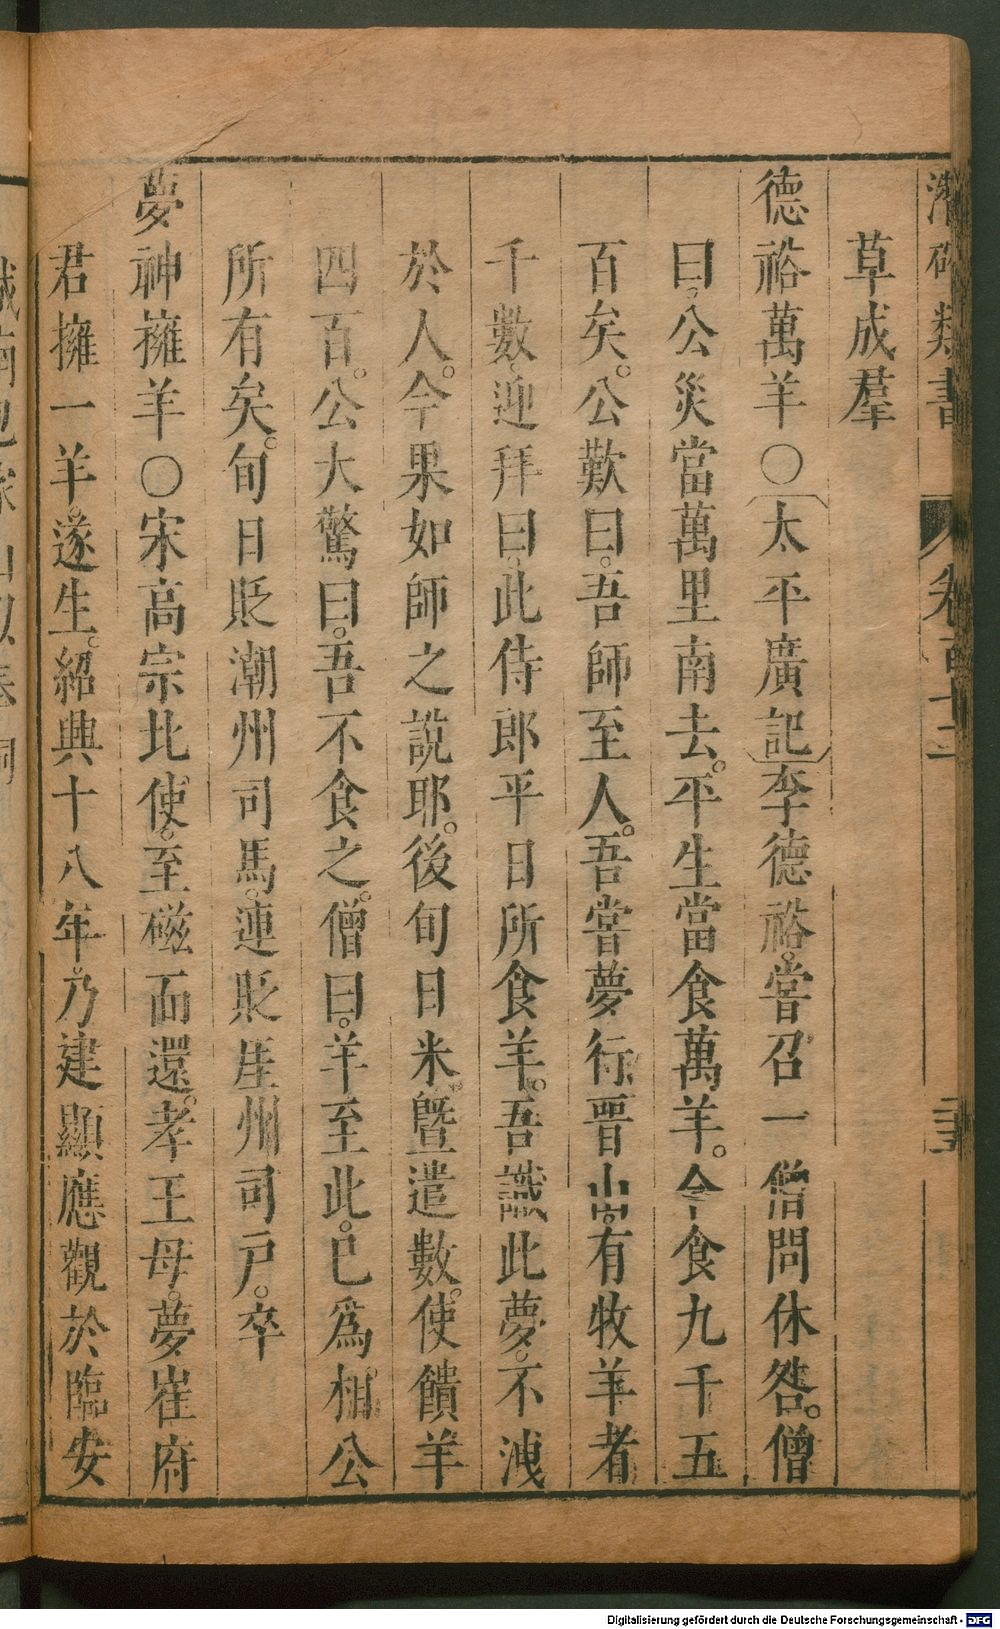 潛確類書 卷百十二
草成羣
德裕萬羊〇太平廣記李德裕。嘗召一僧問休咎。僧
曰。公災當萬里南去。平生當食萬羊。今食九千五
百矣。公歎曰。吾師至人。吾嘗夢行晋山。有牧羊者
千數。迎拜曰。此侍郎平日所食羊。吾識此夢。不洩
於人。今果如師之說耶。後旬日米曁遣數。使饋羊
四百。公大驚曰。吾不食之。僧曰。羊至此。已爲相公
所有矣。旬日貶潮州司馬。連貶崖州司戸。卒
夢神擁羊〇宋高宗北使。至磁而還。孝王母。夢崔府
君擁一羊。遂生。紹興十八年。乃建顯應觀於臨安
Digitalisierung gefördert durch die Deutsche Forschungsgemeinschaft - DFG